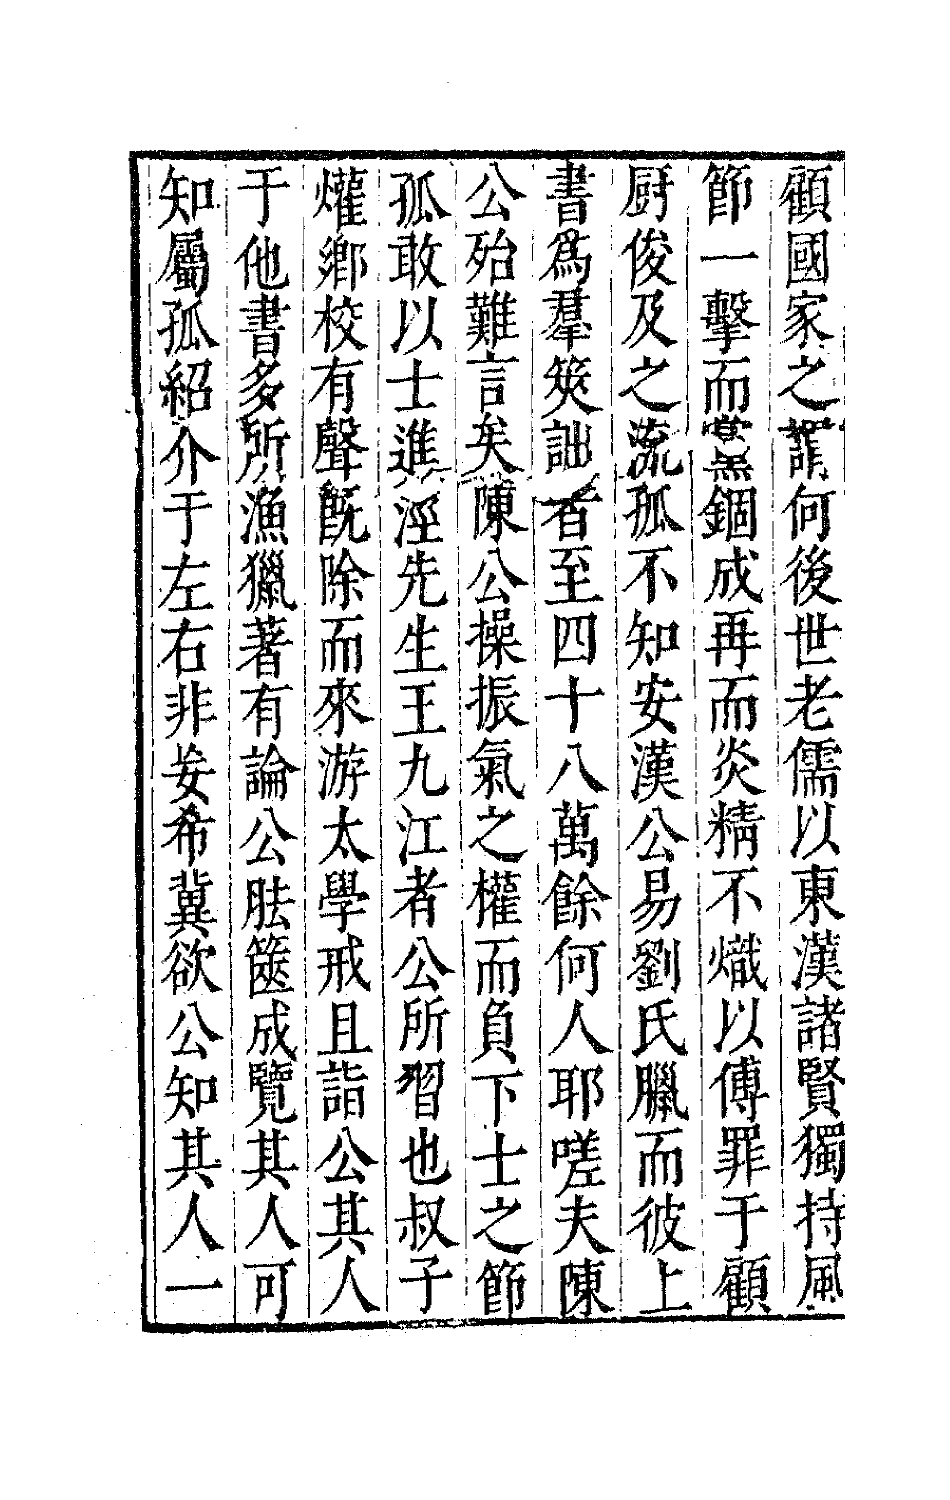 顧國家之謂何後世老儒以東漢諸賢獨持風
節一擊而黨錮成再而炎精不熾以傅罪于顧
厨俊及之流孤不知安漢公易劉氏臘而彼上
書為羣筴詘者至四十八萬餘何人耶嗟夫陳
公殆難言矣陳公操振氣之權而負下士之節
孤敢以士進涇先生王九江者公所習也叔子
爟鄉校有聲既除而來游太學戒且詣公其人
于他書多所漁獵著有論公胠篋成覽其人可
知屬孤紹介于左右非妄希冀欲公知其人一